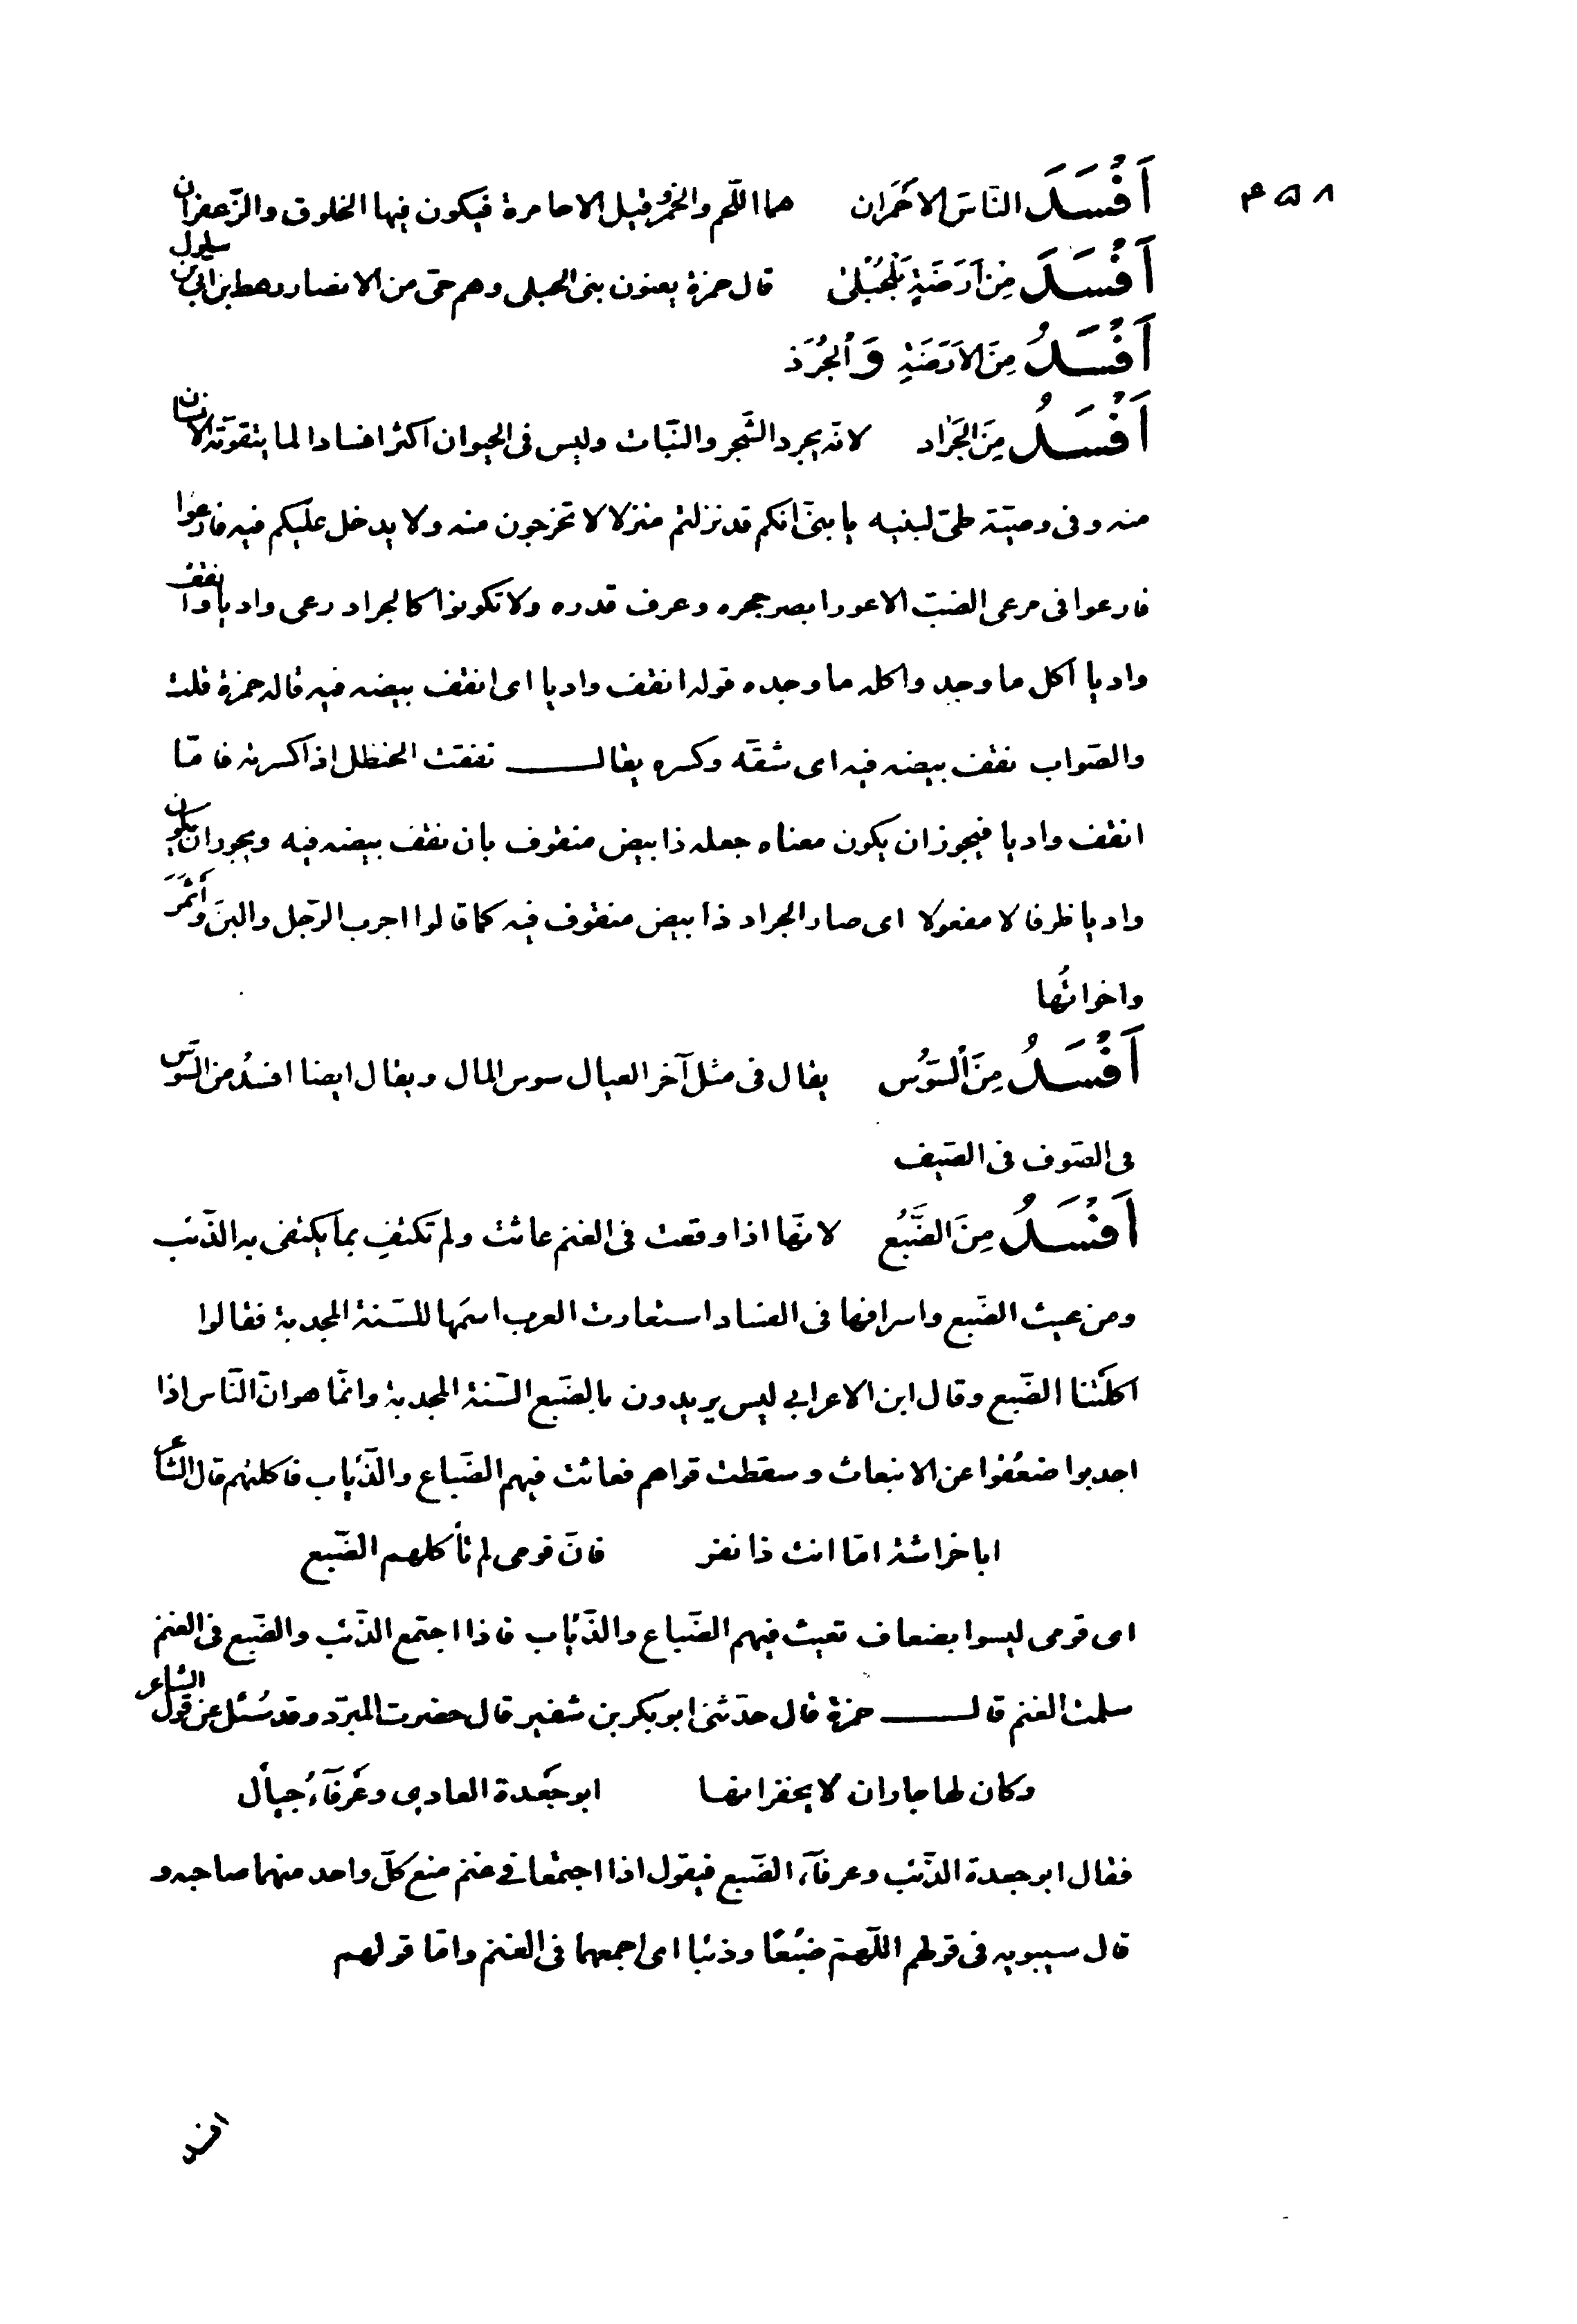 ۴۵۸
اَفْسَدَ النّاسَ الاَحْمَران هما اللّحم والخمرُ وقيل الاحامرة فيكون فيها الخلوق والزّعفران
اَفْسَدَ مِنْ اَرَضَةٍ بَلْحُبْلىٰ قال حمزة يعنون بنى الحبلى وهم حىّ من الانصار رهط ابن ابىّ بن سلول
اَفْسَدُ مِنَ الاَرَضَةِ وَالْجُرَذ
اَفْسَدُ مِنَ الْجَرٰاد لانّه يجرد الشّجر والنّبات وليس فى الحيوان اكثر افسادا لما يتقوّته الانسان
منه وفى وصيّة طىّ لبنيه يا بنىّ انكم قد نزلتم منزلا لا تخرجون منه ولا يدخل عليكم فيه فارعوا
فارعوا فى مرعى الضبّ الاعور ابصر جحره وعرف قدره ولا تكونوا كالجراد رعى واديا وانقف
واديا اكل ما وجد واكله ما وجده قوله انقف واديا اى انقف بيضه فيه قاله حمزة قلت
والصّواب نقف بيضه فيه اى شقّه وكسره يقالــــ نقفت الحنظل اذا كسرته فامّا
انقف واديا فيجوز ان يكون معناه جعله ذا بيض منقوف بان نقف بيضه فيه ويجوز ان يكون
واديا ظرفا لا مفعولا اى صار الجراد ذا بيض منقوف فيه كما قالوا اجرب الرّجل والبن واَثْمَرَ
واخواتُها
اَفْسَدُ مِنَ السّوُس يقال فى مثل آخر العيال سوس المال ويقال ايضا افسدُ من السّوس
فى الصّوف فى الصّيف
اَفْسَدُ مِنَ الضَّبُع لانّها اذا وقعت فى الغنم عاثت ولم تكتفِ بما يكتفى به الذّئب
ومن عيث الضّبع واسرافها فى الفساد استعارت العرب اسمَها للسّنة المجدبة فقالوا
اكلَتْنا الضّبع وقال ابن الاعرابي ليس يريدون بالضّبع السّنة المجدبة وانّما هو انّ النّاس اذا
اجدبوا ضعُفوا عن الانبعاث وسقطت قواهم فعاثت فيهم الضّباع والذّياب فاكلتهم قال الشّاعر
ابا خراشة امّا انت ذا نفر فانّ قومى لم تأكلهم الضّبع
اى قومى ليسوا بضعاف تعيث فيهم الضّباع والذّئاب فاذا اجتمع الذّئب والضّبع فى الغنم
سلمت الغنم قالــــ حمزة قال حدّثنى ابو بكر بن شقير قال حضرت المبرّد وقد سُئل عن قول الشاعر
وكان لها جاران لا يخفرانها ابو جَعْدة العادى وعَرفآءُ جيأل
فقال ابو جعدة الذّئب وعرفآء الضّبع فيقول اذا اجتمعا في غنم منع كلّ واحد منهما صاحبه و
قال سيبويه فى قولهم اللّهمّ ضبُعًا وذئبا اى اجمعهما فى الغنم وامّا قولهم
افسد